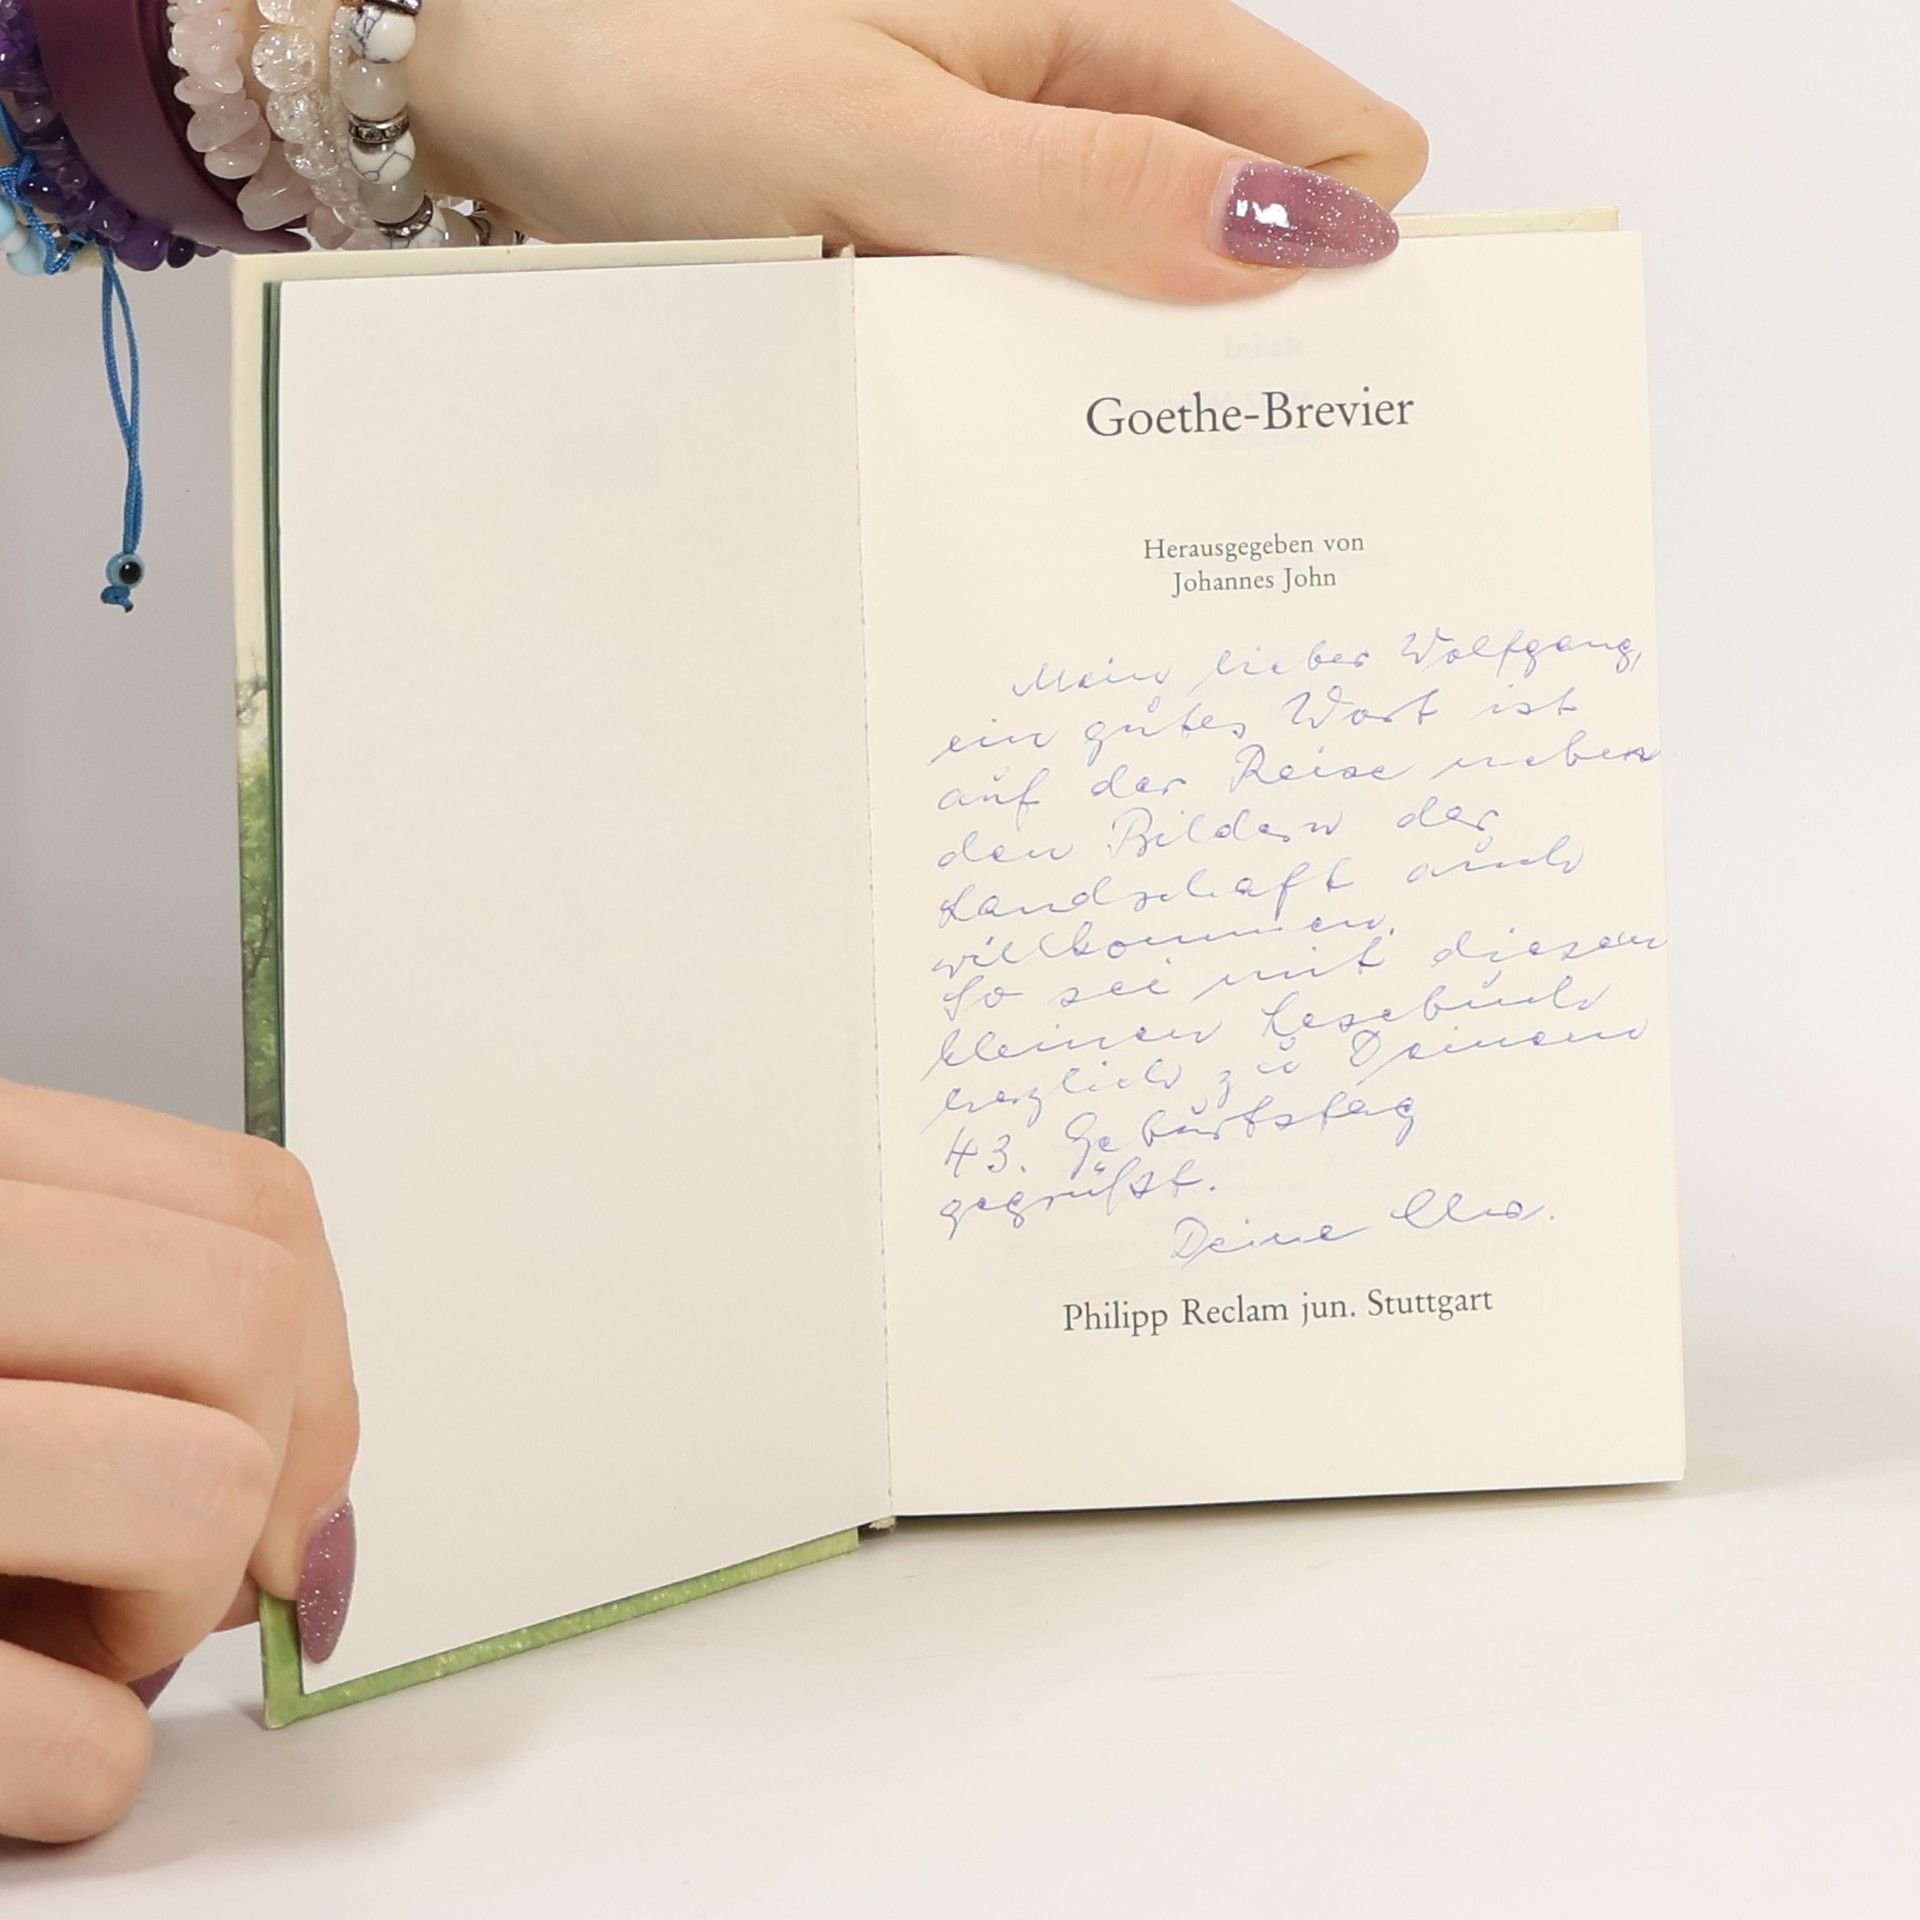 Goethe-Brevier
Herausgegeben von
Johannes John
Mein lieber Wolfgang,
ein gutes Wort ist
auf der Reise neben
den Bildern der
Landschaft auch
willkommen.
So sei mit diesem
kleinen Lesebuch
herzlich zu Deinem
43. Geburtstag
gegrüßt.
Deine
Philipp Reclam jun. Stuttgart